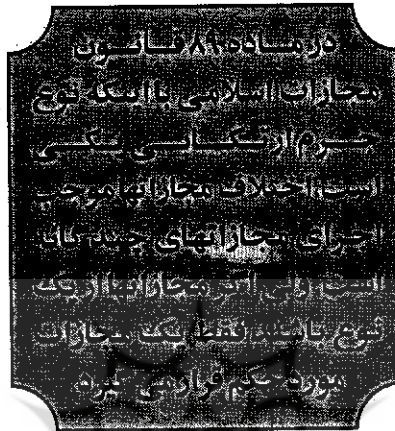 در مـــاده ۸۹ قـــانـــون
مجازات اسلامی با اینکه نوع
جـــرم از یـکـــا
است اختلاف مجازاتها موجب
اجرای مجازاتهای چند گانه
است ولی اگر مجازاتها از یک
نوع باشد، فقط یک مجازات
مورد حکم قرار می گیرد